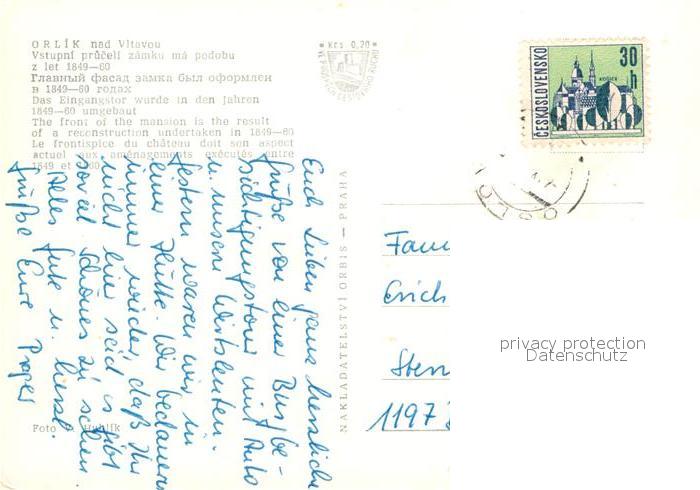 ORLÍK nad Vltavou
Vstupní průčelí zámku má podobu
z let 1849—60
Главный фасад замка был оформлен
в 1849—60 годах
Das Eingangstor wurde in den Jahren
1849—60 umgebaut
The front of the mansion is the result
of a reconstruction undertaken in 1849—60
Le frontispice du château doit son aspect
actuel aux aménagements exécutés entre
1849 et 60
Kčs 0,20
ČESKOSLOVENSKO
30
h
KOŠICE
NAKLADATELSTVÍ ORBIS — PRAHA
Euch Lieben ganz herzliche
Grüße von einer Burgbe-
sichtigungstour mit Auto
u. unseren Wirtsleuten.
Gestern waren wir in
einer Hütte. Wir bedauern
immer wieder, daß Ihr
nicht hier seid es gibt
soviel Schönes zu sehen.
Alles Gute u. herzl.
Grüße Eure
Fam
Erich
Sten
1197
Foto V. Hublík
privacy protection
Datenschutz